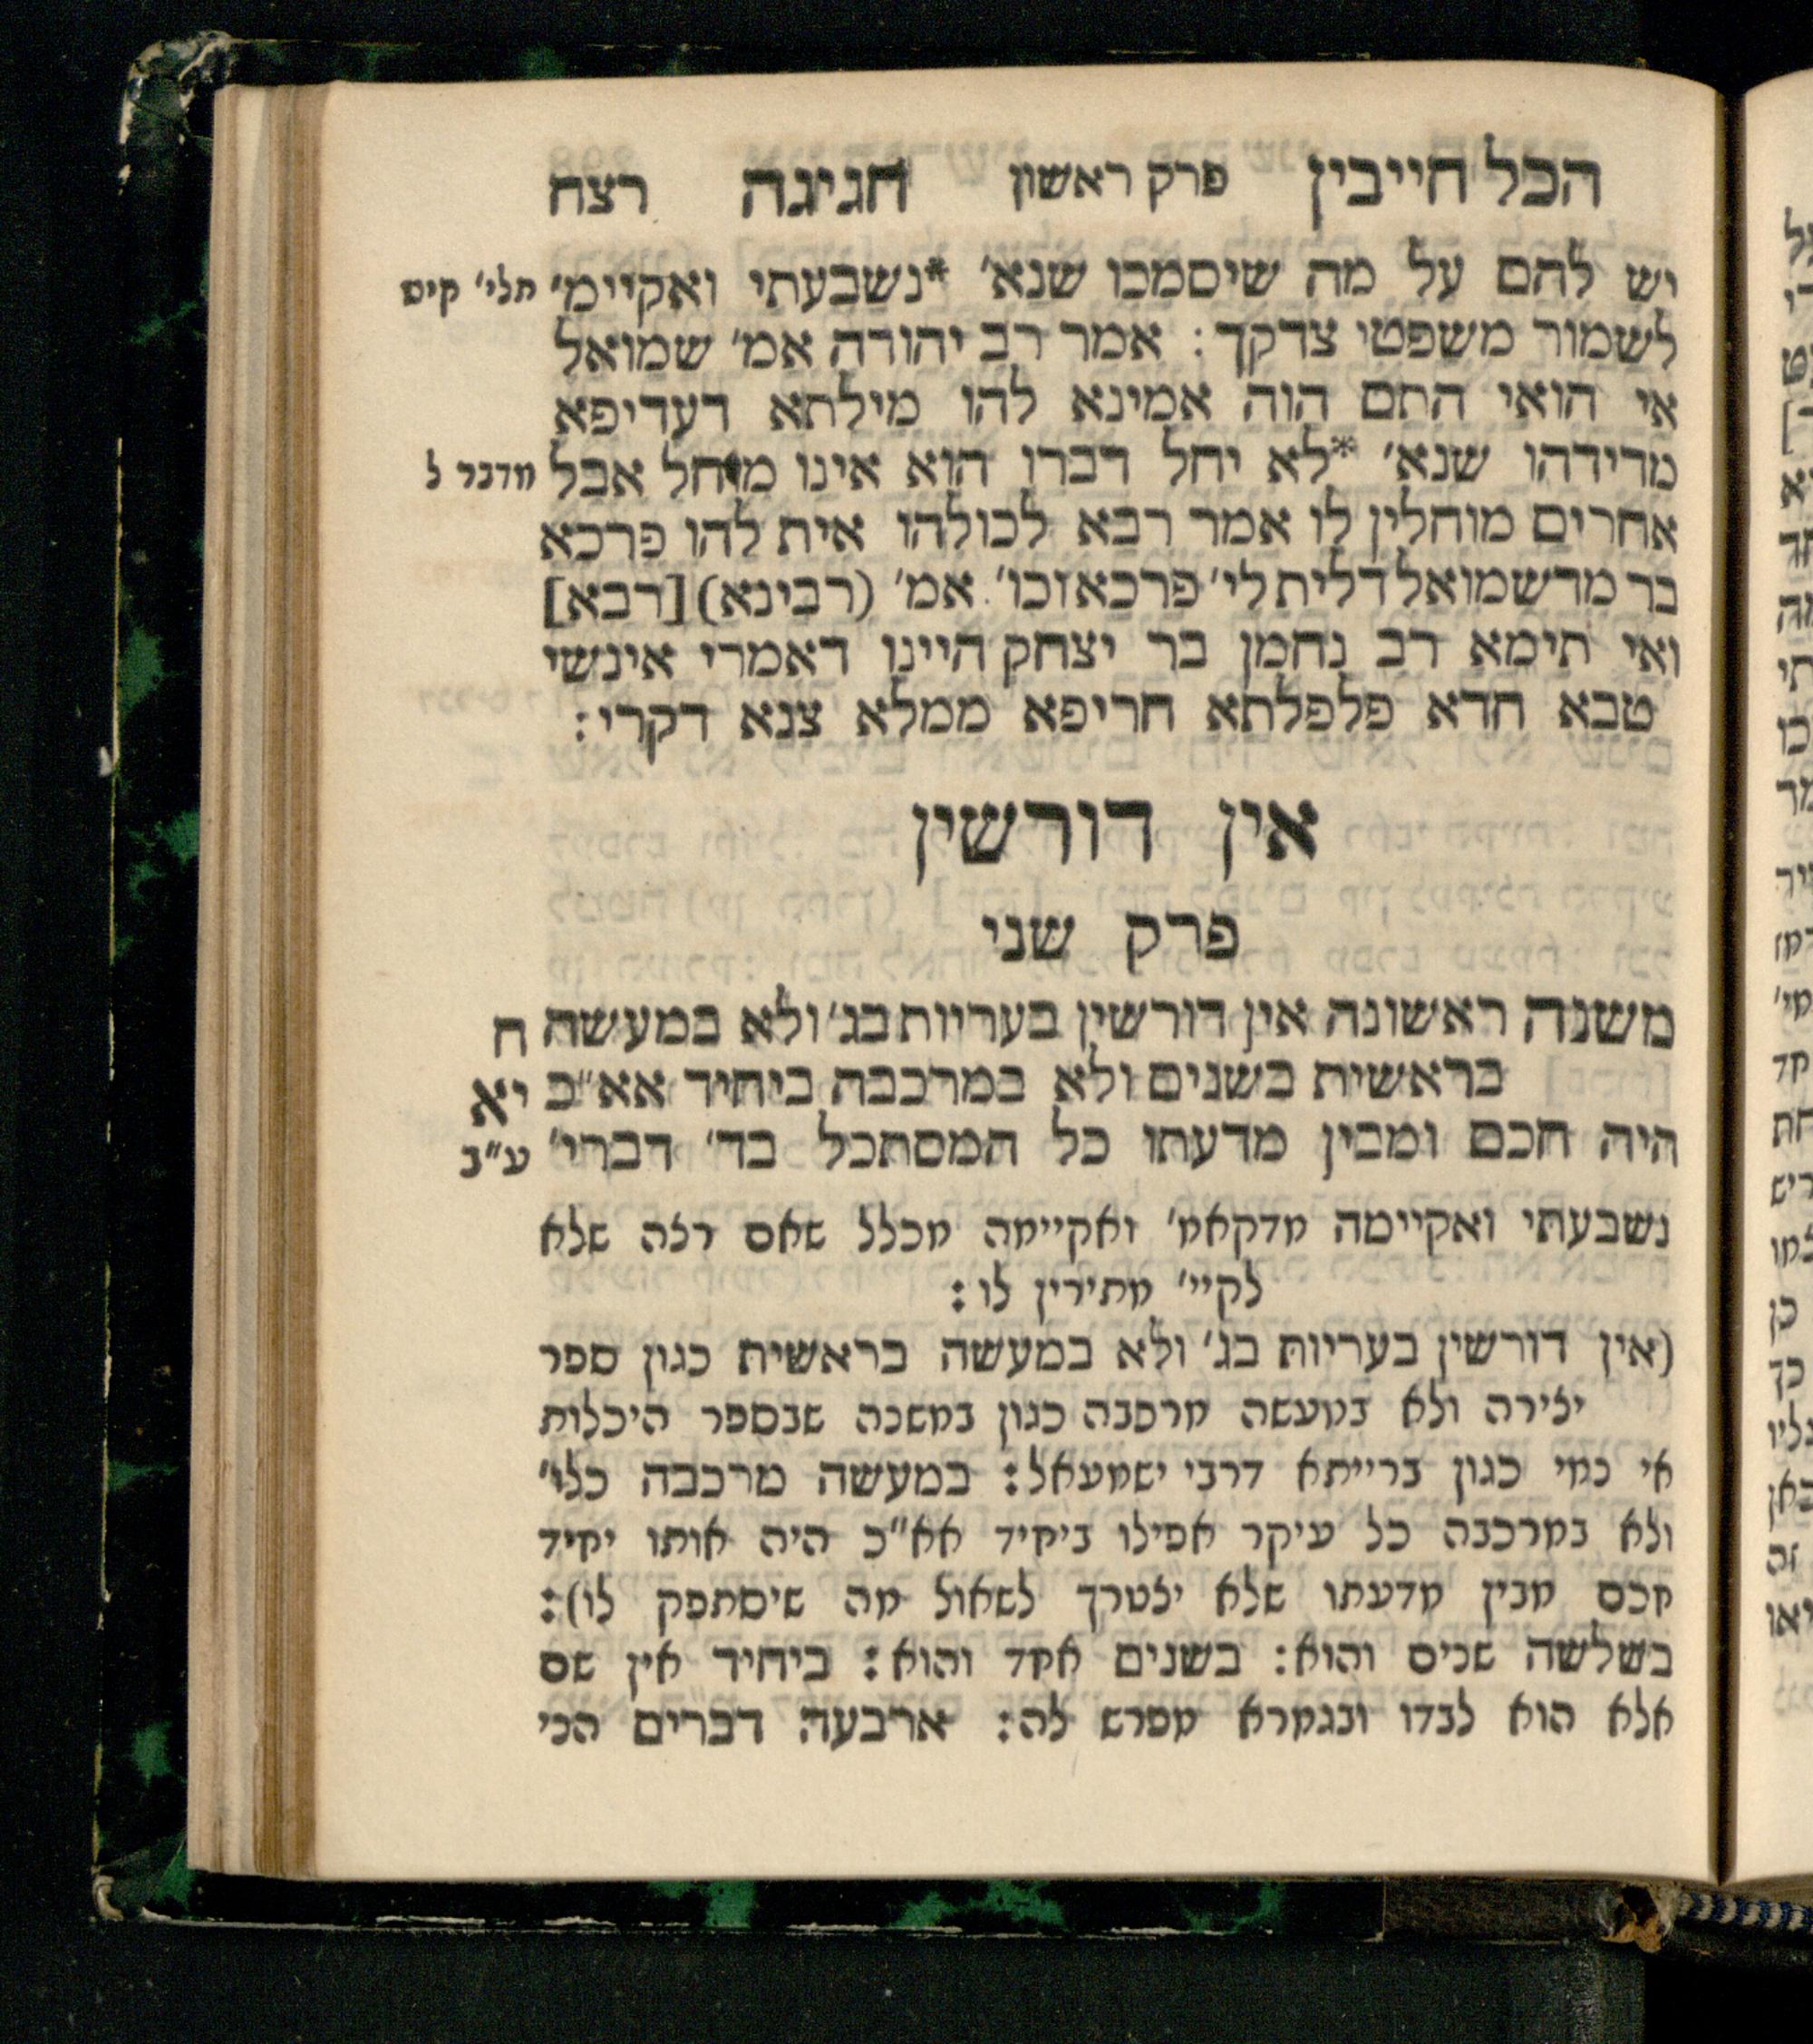 הכל חייבין פרק ראשון חגיגה רצח
יש להם על מה שיסמכו שנא׳ *נשבעתי ואקיימ׳ תלי׳ קיט
לשמור משפטי צדקך: אמר רב יהודה אמ׳ שמואל
אי הואי התם הוה אמינא להו מילתא דעדיפא
מדידהו שנא׳ *לא יחל דברו הוא אינו מוחל אבל מדבר ל
אחרים מוחלין לו אמר רבא לכולהו אית להו פרכא
בר מדשמואל דלית לי׳ פרכא וכו׳. אמ׳ (רבינא) [רבא]
ואי תימא רב נחמן בר יצחק היינו דאמרי אינשי
טבא חדא פלפלתא חריפא ממלא צנא דקרי:
אין דורשין
פרק שני
משנה ראשונה אין דורשין בעריות בג׳ ולא במעשה ח
בראשית בשנים ולא במרכבה ביחיד אא״כ יא
היה חכם ומבין מדעתו כל המסתכל בד׳ דברי׳ ע״ב
נשבעתי ואקיימה מדקאמ׳ ואקיימה מכלל שאם רצה שלא
לקיי׳ מתירין לו:
(אין דורשין בעריות בג׳ ולא במעשה בראשית כגון ספר
יצירה ולא במעשה מרכבה כגון במשנה שבספר היכלות
אי נמי כגון ברייתא דרבי ישמעאל: במעשה מרכבה כלו׳
ולא במרכבה כל עיקר אפילו ביחיד אא״כ היה אותו יחיד
חכם מבין מדעתו שלא יצטרך לשאול מה שיסתפק לו):
בשלשה שנים והוא: בשנים אחד והוא: ביחיד אין שם
אלא הוא לבדו ובגמרא מפרש לה: ארבעה דברים הכי